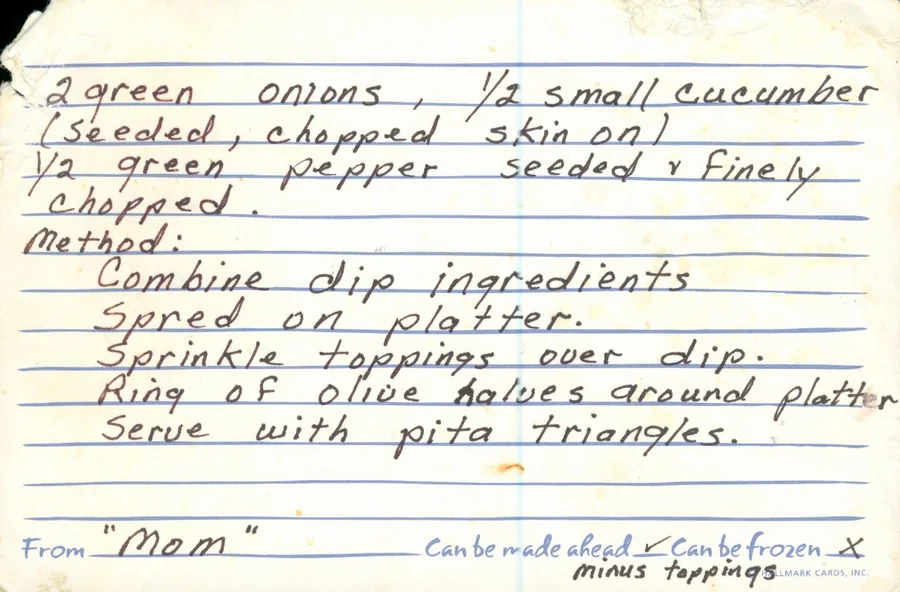 2 green onions, 1/2 small cucumber
(seeded, chopped skin on)
1/2 green pepper seeded & finely
chopped.
Method:
Combine dip ingredients
Spred on platter.
Sprinkle toppings over dip.
Ring of olive halves around platter
Serve with pita triangles.
From "Mom" Can be made ahead ✓ Can be frozen X
minus toppings HALLMARK CARDS, INC.